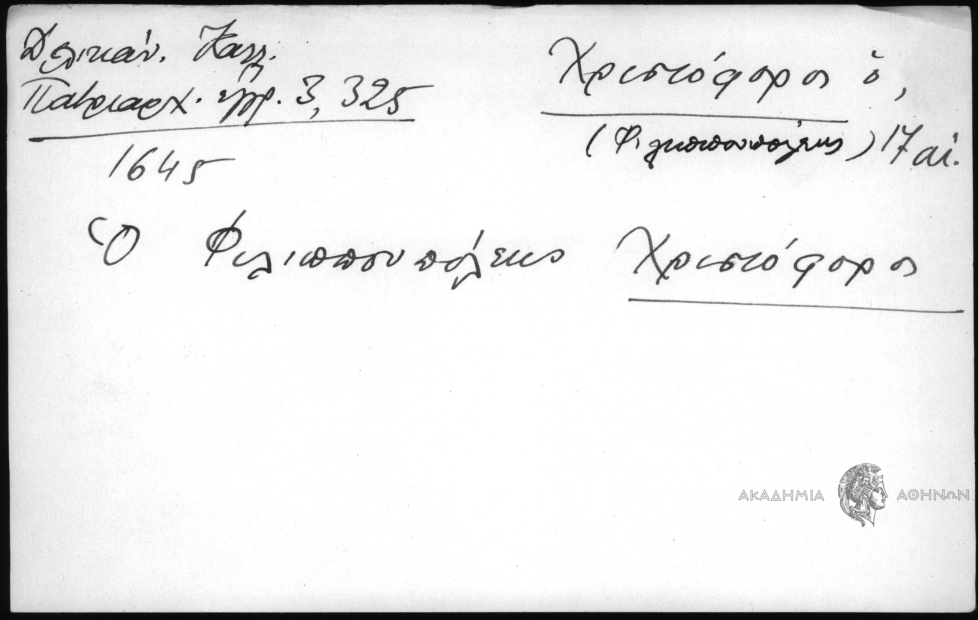 Δελικάν. Καλλ.
Πατριαρχ. ἔγγρ. 3, 325
1645
Χριστόφορος ὁ,
(Φιλιππουπόλεως) 17 αἰ.
Ὁ Φιλιππουπόλεως Χριστόφορος
ΑΚΑΔΗΜΙΑ ΑΘΗΝΩΝ